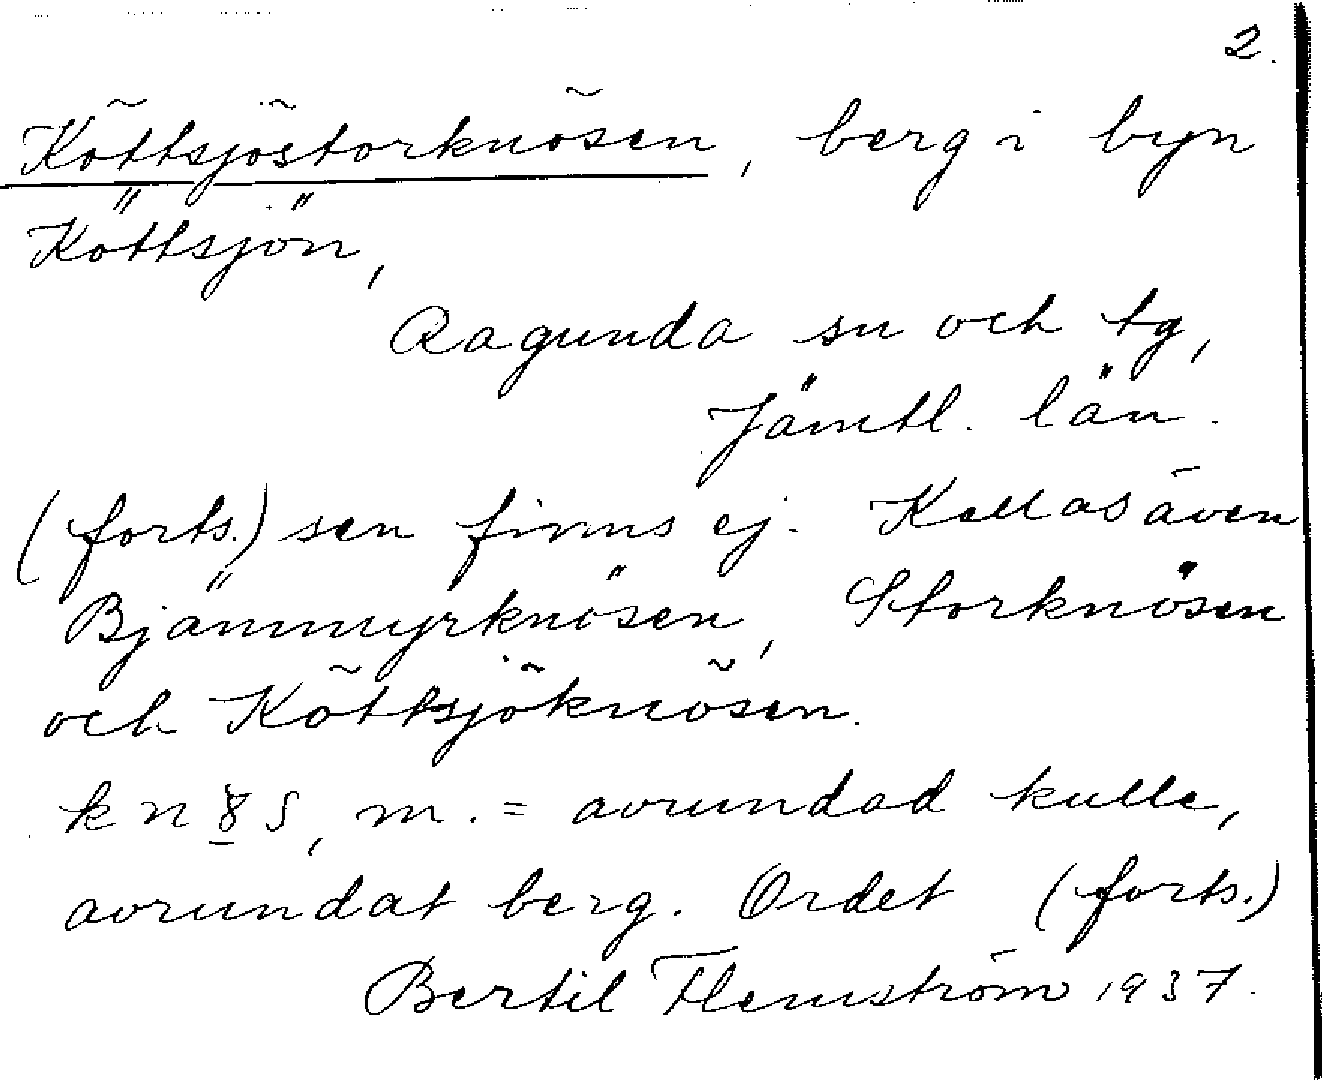 2.
Köttsjöstorknösen, berg i byn
Köttsjön,
Ragunda sn och tg,
Jämtl. län.
(forts.) sen finns ej. Kallas även
Bjännmyrknösen, Storknösen
och Köttsjöknösen.
m. = avrundad kulle,
avrundat berg. Ordet (forts.)
Bertil Flemström 1937.